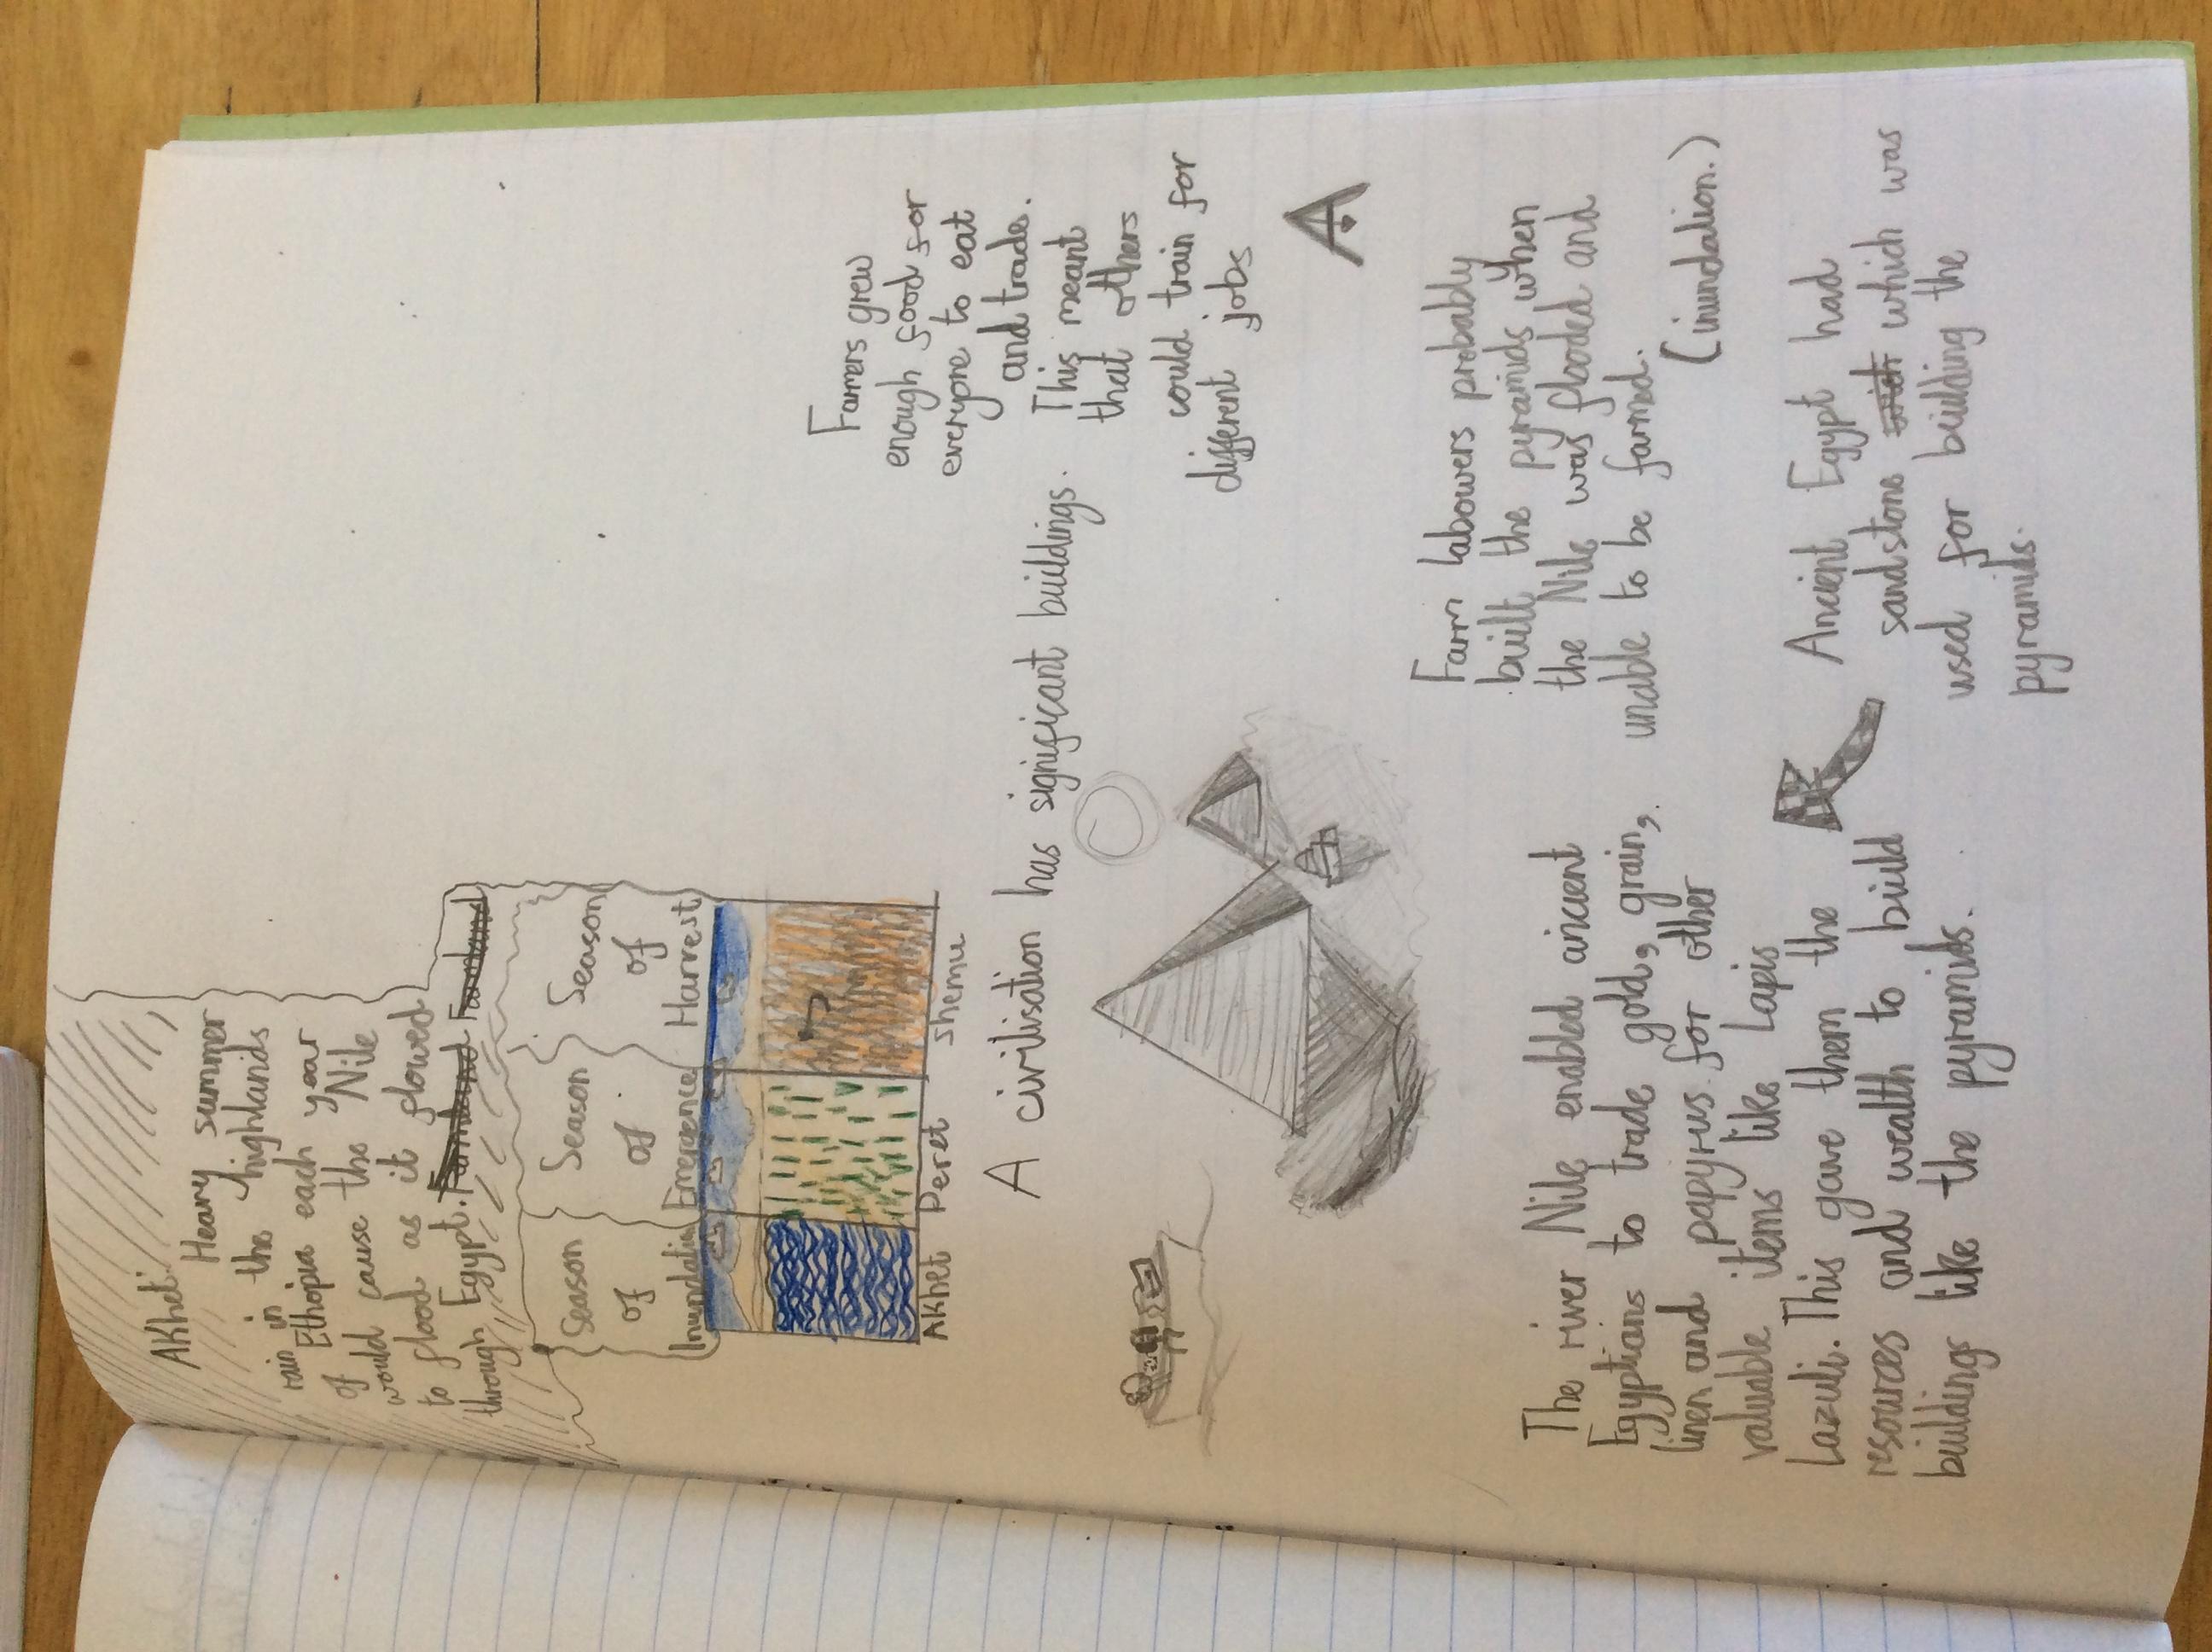 Akhet:
Heavy summer
rain in the highlands
of Ethiopia each year
would cause the Nile
to flood as it flowed
through Egypt.
Season
of
Inundation
Season
of
Emergence
Season
of
Harvest
Akhet
Peret
Shemu
A civilisation has significant buildings.
Farmers grew
enough food for
everyone to eat
and trade.
This meant
that others
could train for
different jobs
Farm labowers probably
built the pyramids when
the Nile was flooded and
unable to be farmed.
(inundation.)
The river Nile enabled ancient
Egyptians to trade gold, grain,
linen and papyrus for other
valuable items like Lapis
Lazuli. This gave them the
resources and wealth to build
buildings like the pyramids.
Ancient Egypt had
sandstone which was
used for building the
pyramids.